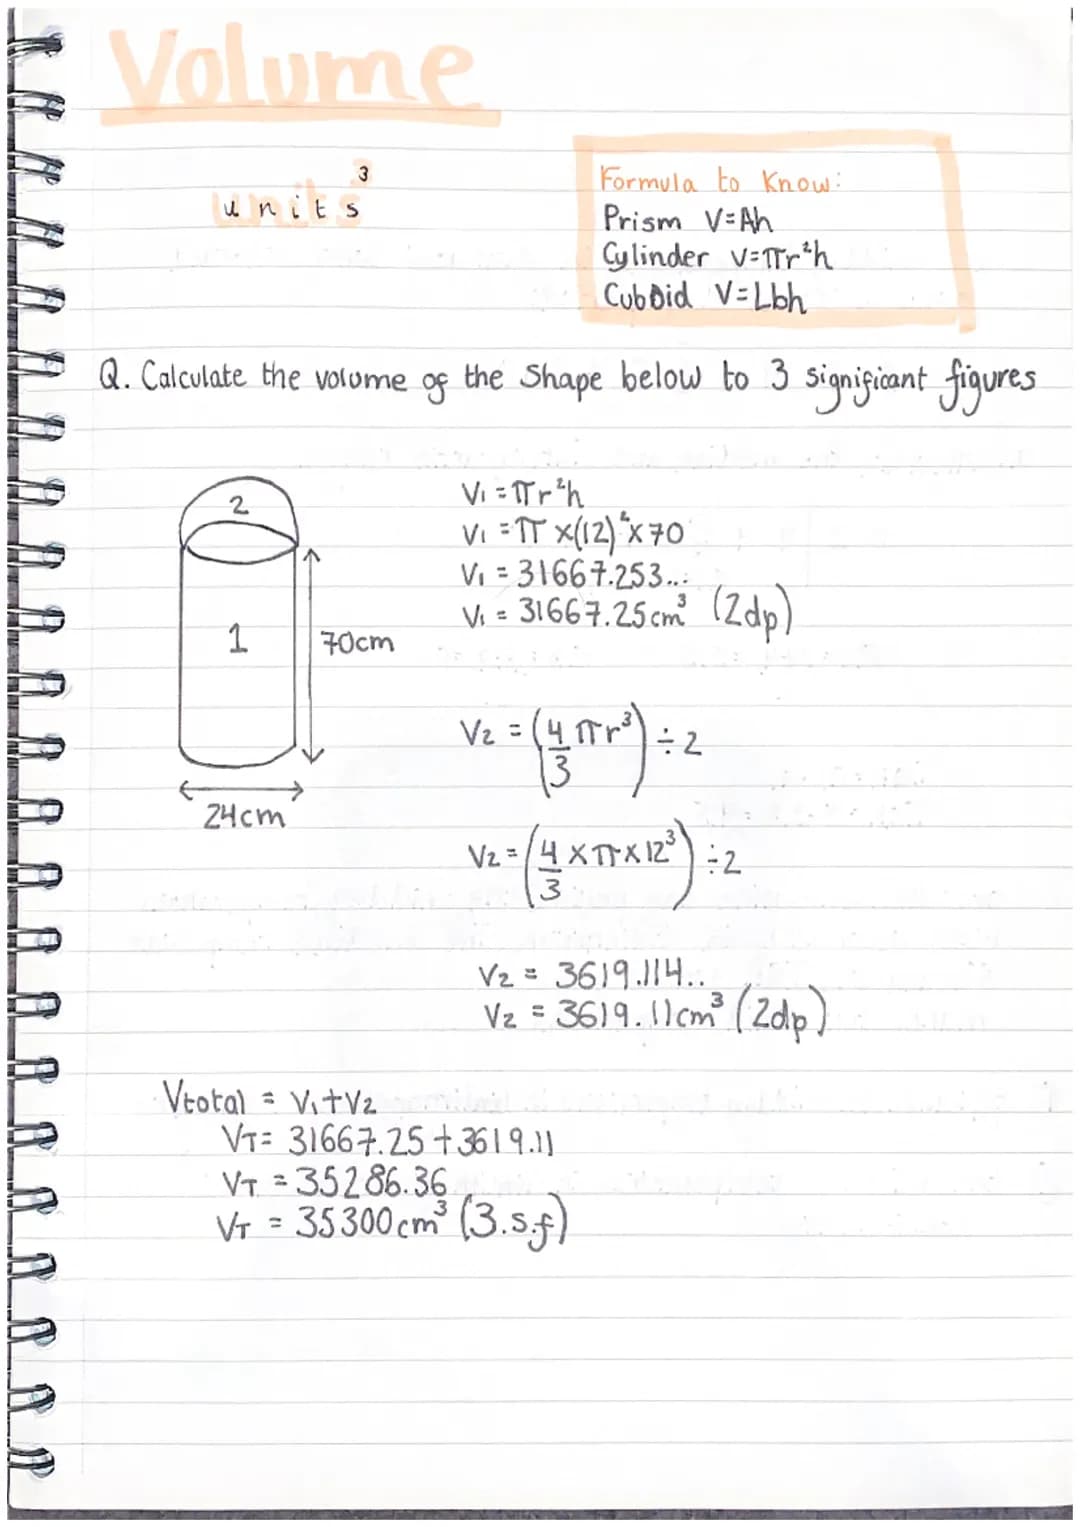 Volume
units³
Formula to Know:
Prism V=Ah
Cylinder V=πr²h
Cuboid V=Lbh
Q. Calculate the volume of the Shape below to 3 significant figures
2
1
70cm
24cm
V₁ = πr²h
V₁ = π x(12)²x70
V₁ = 31667.253...
V₁ = 31667.25cm³ (2dp)
V₂ = (4/3 πr³) ÷ 2
V₂ = (4/3 x π x 12³) ÷ 2
V₂ = 3619.114..
V₂ = 3619.11cm³ (2dp)
Vtotal = V₁+V₂
VT = 31667.25 + 3619.11
VT = 35286.36
VT = 35300cm³ (3.s.f)